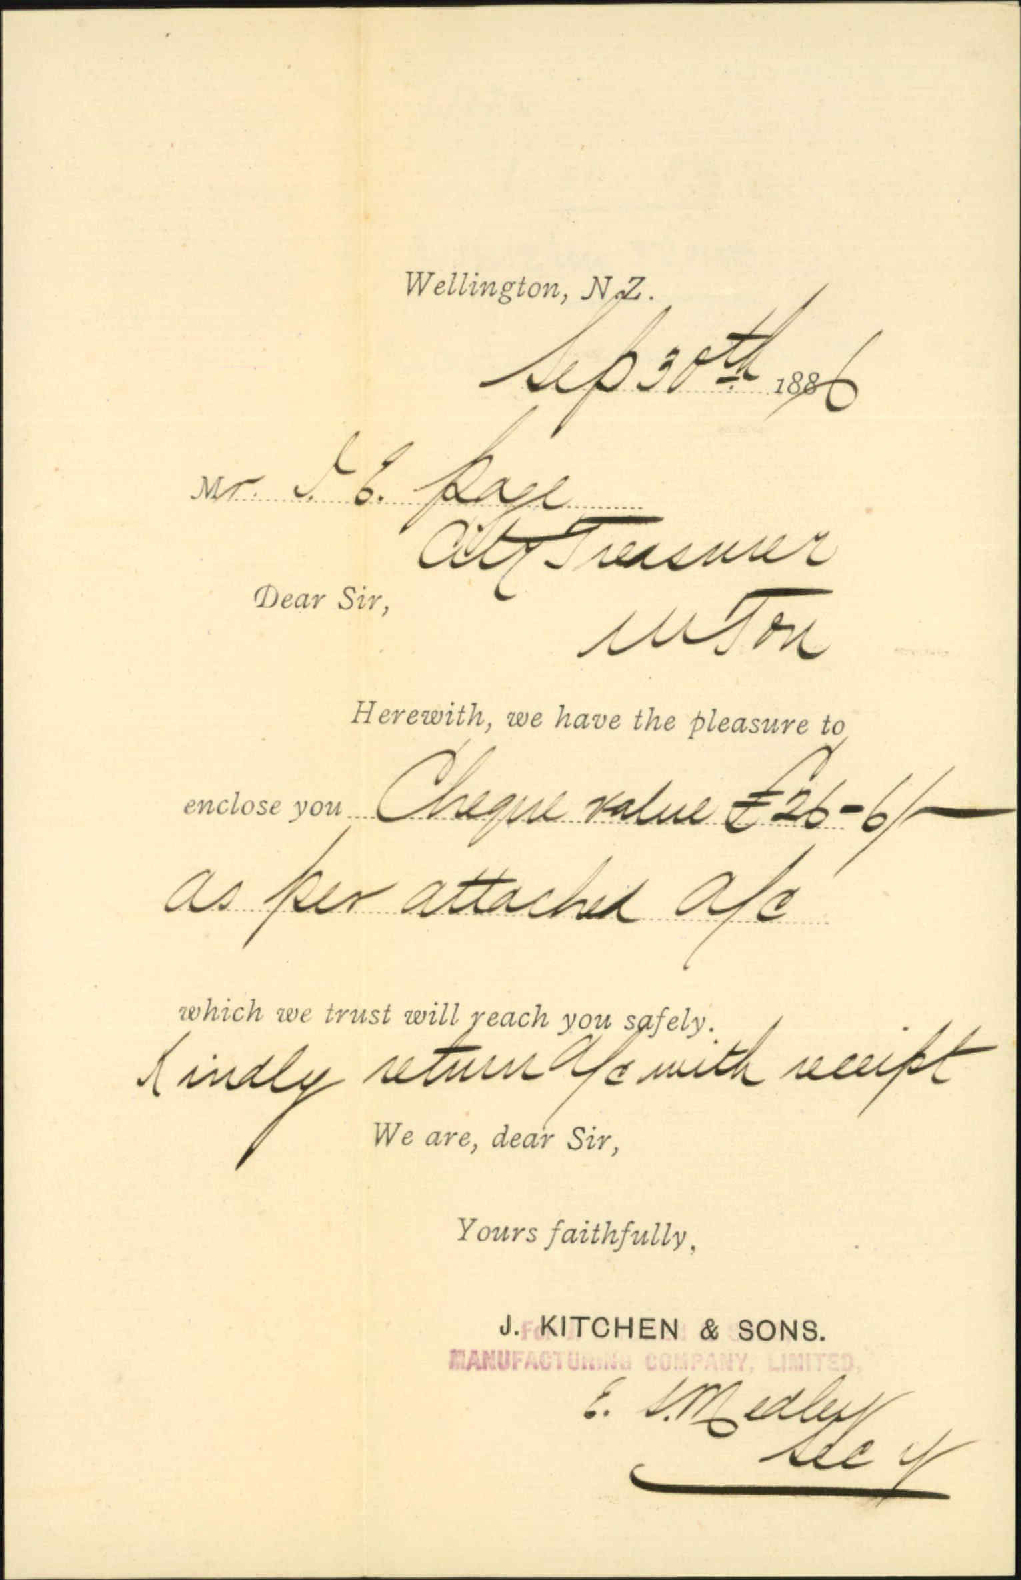 Wellington, N.Z.
Sep 30th 1886
Mr. J. E. Page
City Treasurer
Dear Sir,
W Ton
Herewith, we have the pleasure to
enclose you Cheque value £26-6/-
as per attached a/c
which we trust will reach you safely.
Kindly return a/c with receipt
We are, dear Sir,
Yours faithfully,
J. KITCHEN & SONS.
For
MANUFACTURING COMPANY, LIMITED,
E. S. Medley
Secy